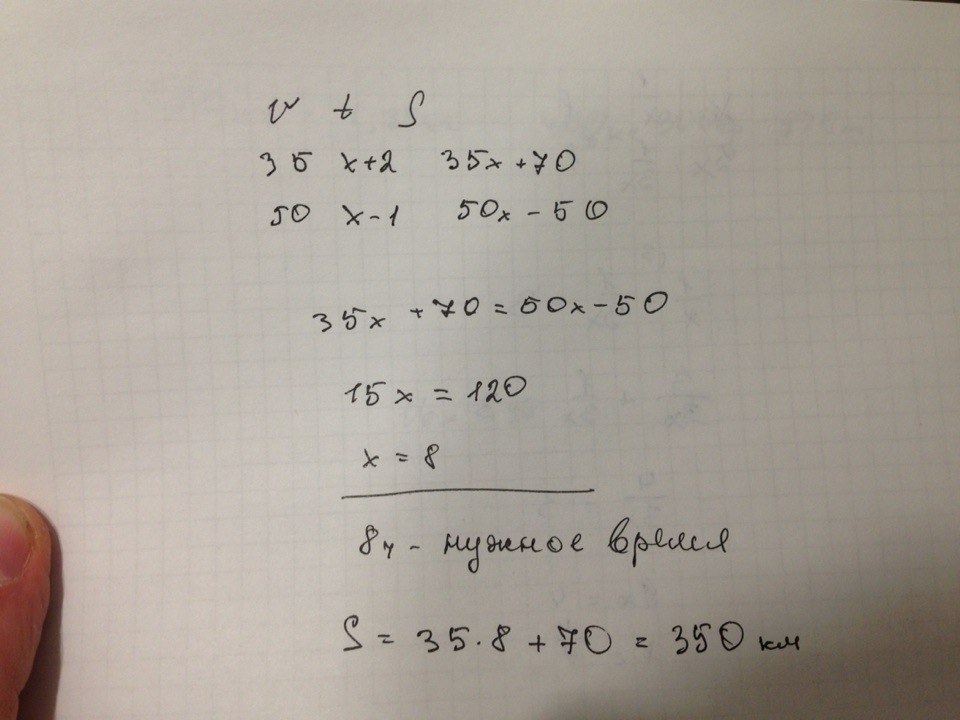 v t S
35 x+2 35x+70
50 x-1 50x-50
35x+70=50x-50
15x=120
x=8
8ч - нужное время
S = 35·8+70 = 350 км